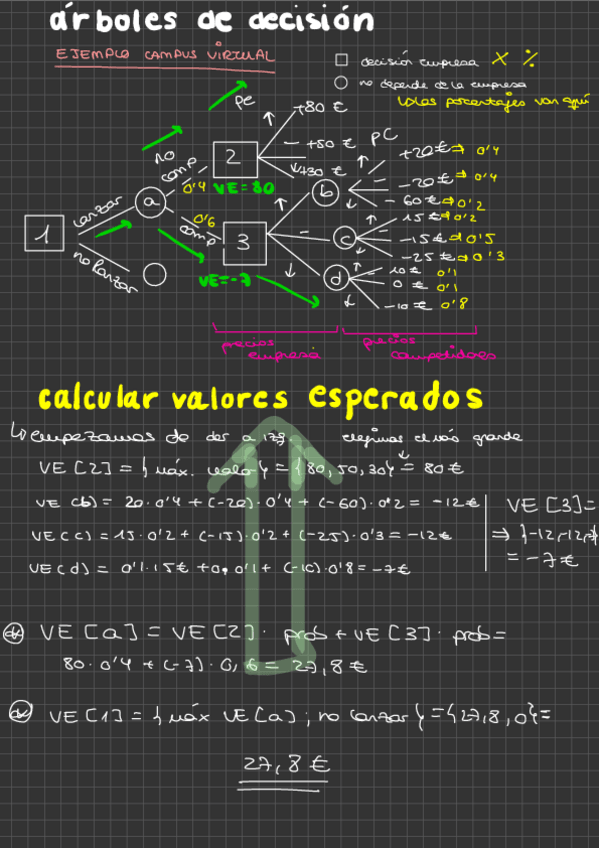 árboles de decisión
EJEMPLO CAMPUS VIRTUAL
decisión empresa X %
no depende de la empresa
los porcentajes van aquí
1
lanzar
no lanzar
a
no comp
0'4
comp
0'6
2
VE = 80
3
VE = -7
pe
↑ +80 €
— +50 €
↓ +30 €
PC
b
↑ +20 € ⇒ 0'4
— -20 € ⇒ 0'4
↓ -60 € ⇒ 0'2
c
↑ 15 € ⇒ 0'2
— -15 € ⇒ 0'5
↓ -25 € ⇒ 0'3
d
↑ 10 € 0'1
— 0 € 0'1
↓ -10 € 0'8
precios empresa
precios competidores
calcular valores esperados
↳ empezamos de der a izq. elegimos el más grande
VE [2] = { máx. valor } = {80, 50, 30} = 80 €
VE (b) = 20·0'4 + (-20)·0'4 + (-60)·0'2 = -12 €
VE (c) = 15·0'2 + (-15)·0'2 + (-25)·0'3 = -12 €
VE (d) = 0'1·15 € + 0,0'1 + (-10)·0'8 = -7 €
VE [3] =
⇒ {-12,-12,-7}
= -7 €
VE [a] = VE [2] · prob + VE [3] · prob =
80·0'4 + (-7)·0,6 = 27,8 €
VE [1] = { máx VE [a] ; no lanzar } = {27,8, 0} =
27,8 €